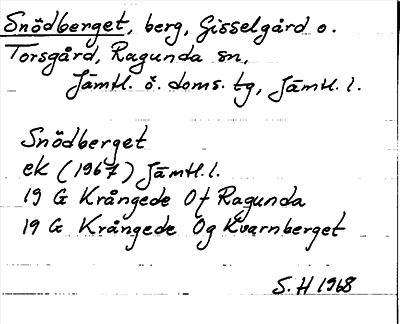 Snödberget, berg, Gisselgård o.
Torsgård, Ragunda sn,
Jämtl. ö. doms. tg, Jämtl. l.
Snödberget
ek (1967) Jämtl. l.
19 G Krångede Of Ragunda
19 G Krångede Og Kvarnberget
S. H 1968